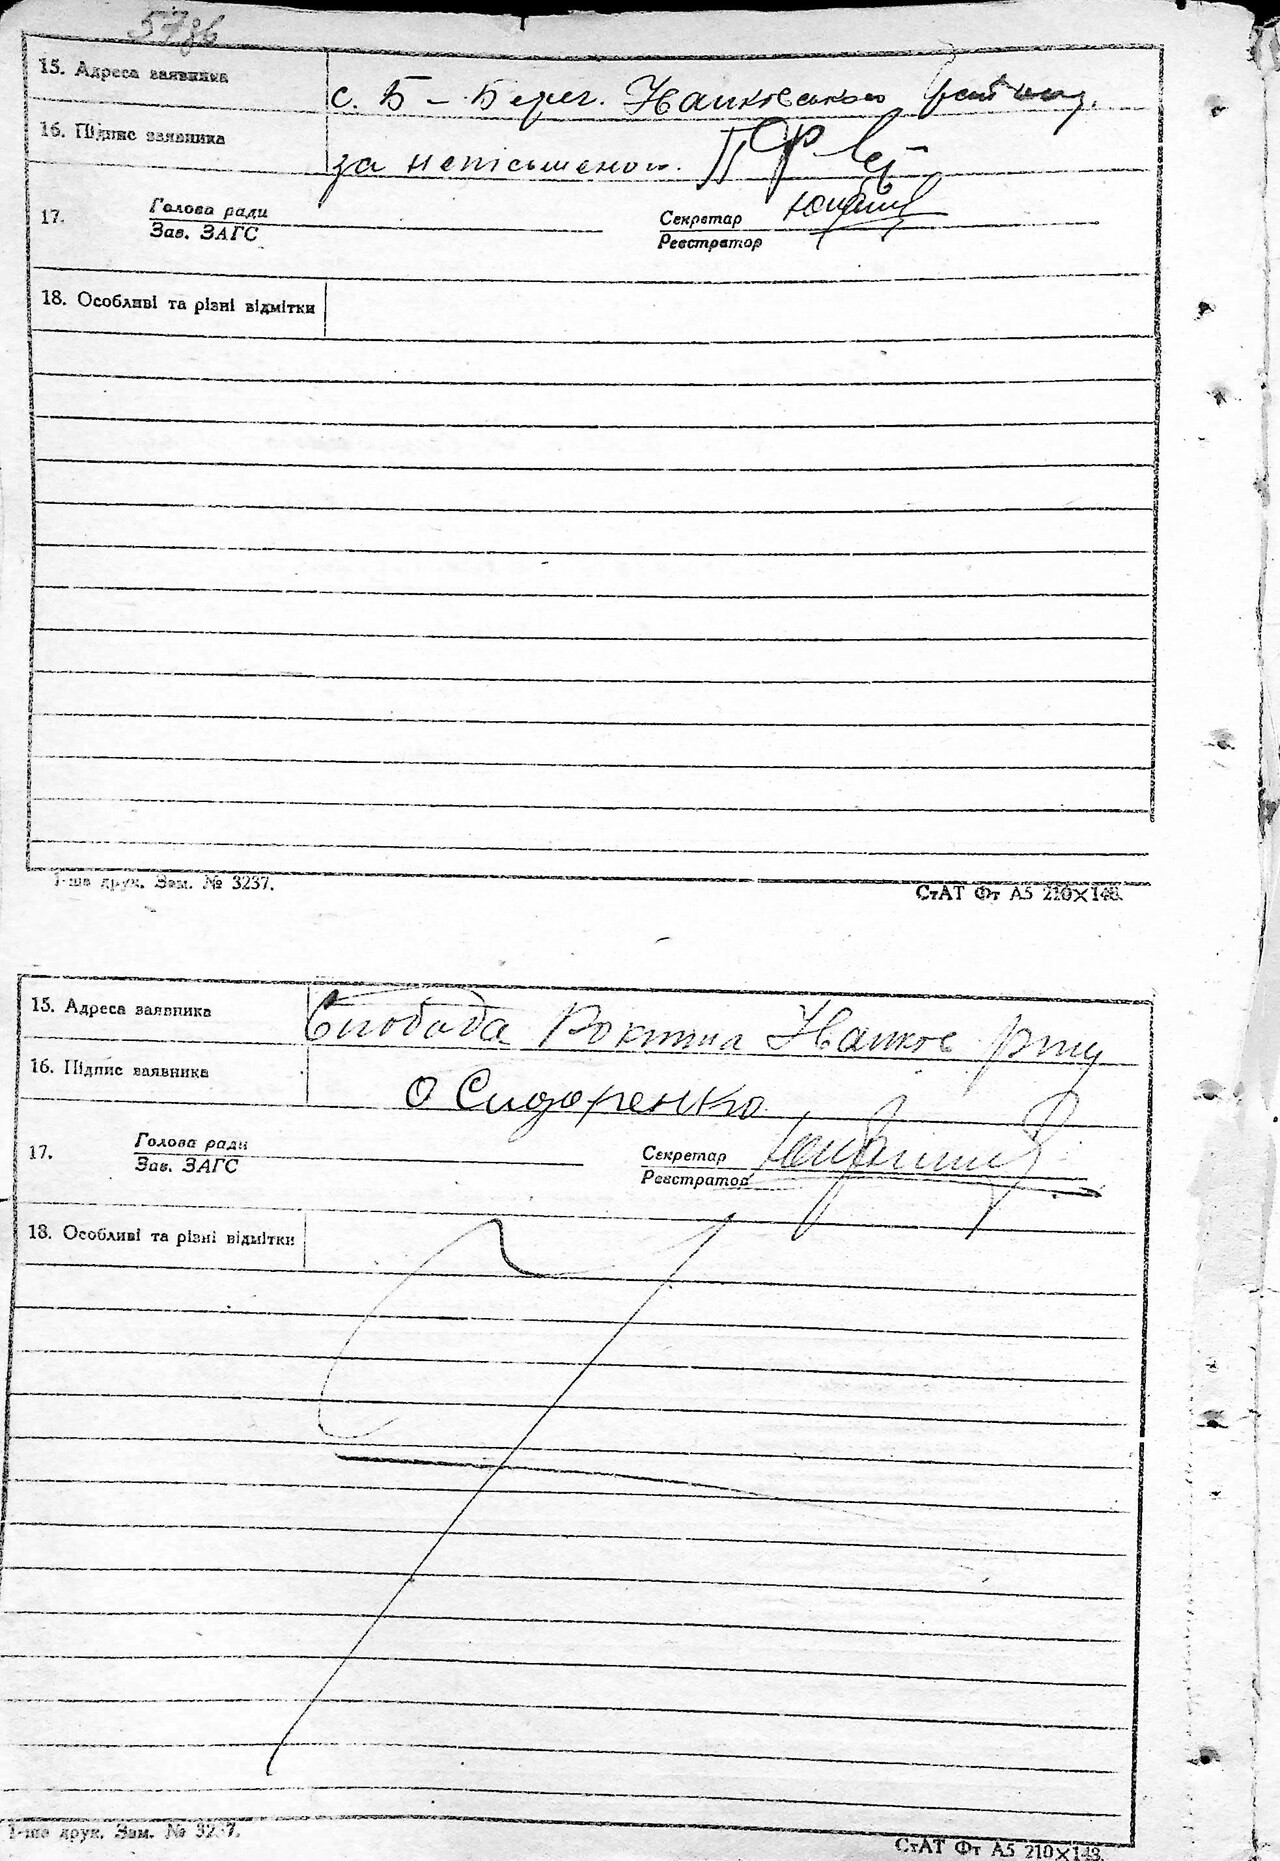 5786
15. Адреса заявника с. Б-Берег. Іванковського району.
16. Підпис заявника за неписьменого.
17. Голова ради
Зав. ЗАГС
Секретар
Реєстратор
18. Особливі та різні відмітки
1-ша друк. Зам. № 3237. СтАТ Фт А5 210×148.
15. Адреса заявника Слобода Іванков р-ну
16. Підпис заявника О Сидоренко
17. Голова ради
Зав. ЗАГС
Секретар
Реєстратор
18. Особливі та різні відмітки
1-ша друк. Зам. № 3237. СтАТ Фт А5 210×148.